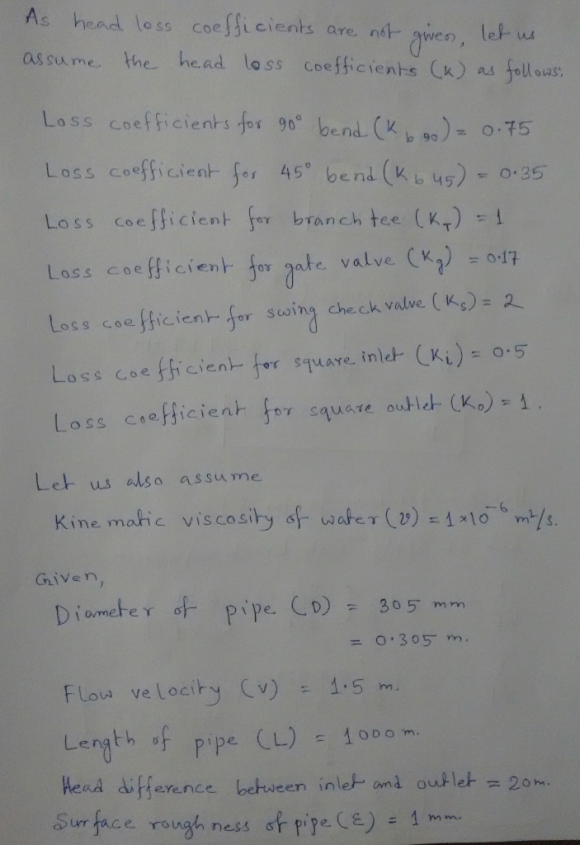 As head loss coefficients are not given, let us
assume the head loss coefficients (K) as follows:
Loss coefficients for 90° bend (K b 90) = 0.75
Loss coefficient for 45° bend (K b 45) = 0.35
Loss coefficient for branch tee (KT) = 1
Loss coefficient for gate valve (Kg) = 0.17
Loss coefficient for swing check valve (Ks) = 2
Loss coefficient for square inlet (Ki) = 0.5
Loss coefficient for square outlet (Ko) = 1.
Let us also assume
Kinematic viscosity of water (ν) = 1 × 10⁻⁶ m²/s.
Given,
Diameter of pipe (D) = 305 mm
= 0.305 m.
Flow velocity (V) = 1.5 m.
Length of pipe (L) = 1000 m.
Head difference between inlet and outlet = 20m.
Surface roughness of pipe (ε) = 1 mm